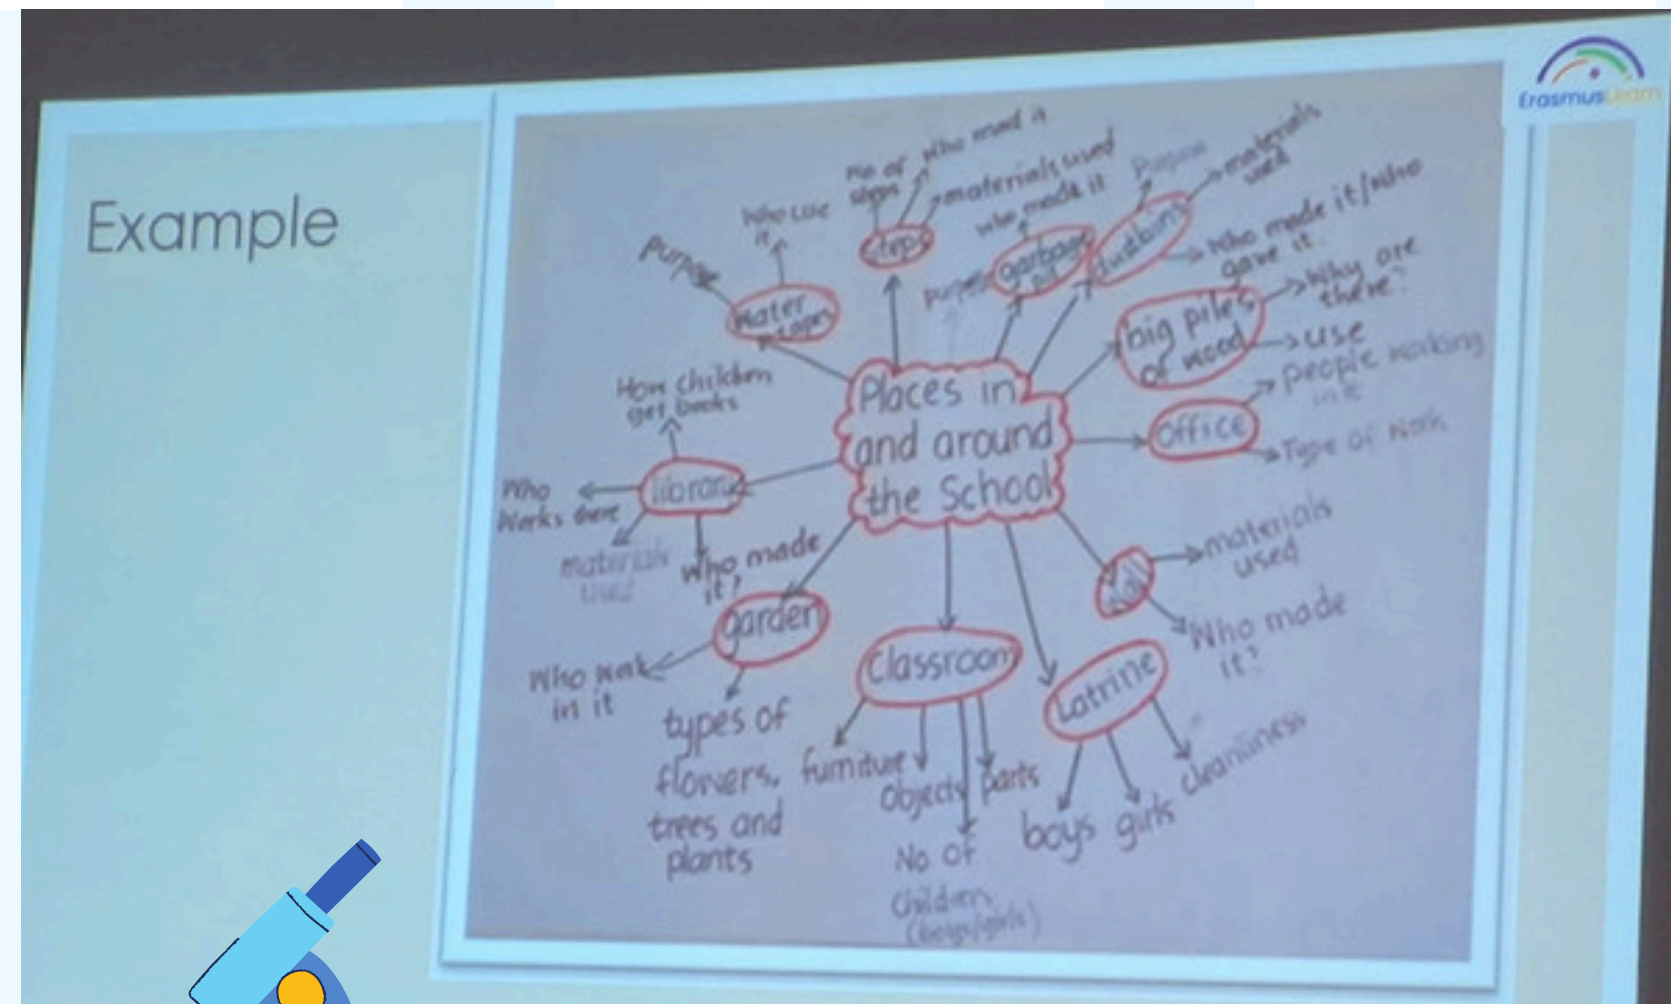 Example
ErasmusLearn
Places in
and around
the School
Water
taps
Purpose
Who use
it
Steps
No of
steps
Who mad it
materials used
garbage
pit
purpose
who made it
dustbin
Purpose
materials
used
Who made it/who
gave it
big piles
of wood
Why are
there?
use
Office
people working
in it
Type of work
materials
used
Who made
it?
Latrine
boys
girls
cleanliness
Classroom
furniture
Objects
parts
No of
Children
(boys/girls)
garden
Who work
in it
types of
flowers,
trees and
plants
library
How children
get books
Who
Works there
materials
used
Who made
it?